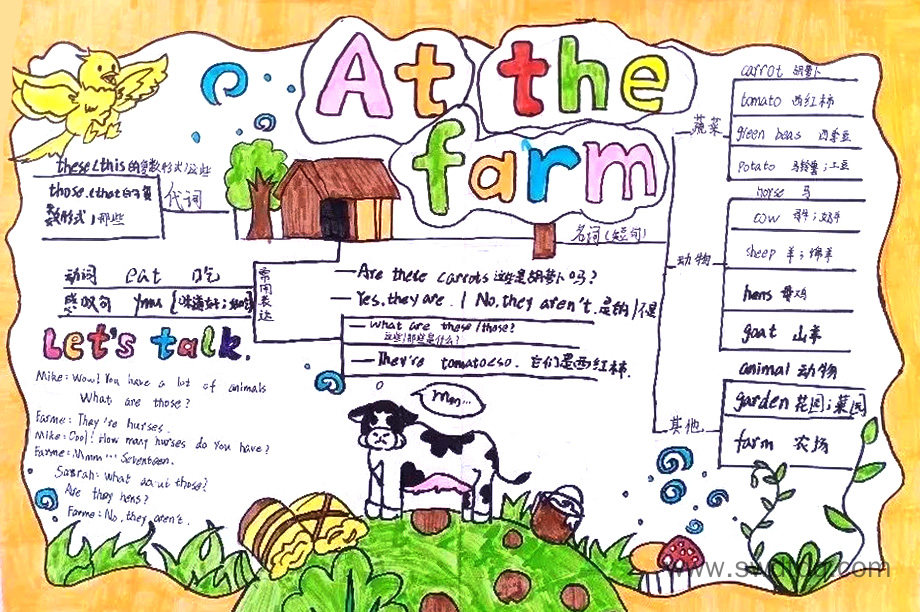 At the
farm
these(this的复数形式)这些
those.(that的复
数形式)那些
代词
动词 eat 吃
感叹句 yum
常用表达
Let's talk.
Mike: Wow! You have a lot of animals
What are those?
Farme: They're hurses.
Mike: Cool! How many hurses do You have?
Farme: Mmm… Seventeen.
Sarah: What about those?
Are they hens?
Farme: No, they aren't.
—Are these carrots 这些是胡萝卜吗?
—Yes, they are. / No, they aren't. 是的/不是
—What are these/those?
这些/那些是什么?
—They're tomatoeso. 它们是西红柿.
mm...
名词(短句)
蔬菜
carrot 胡萝卜
tomato 西红柿
green beas 四季豆
potato 马铃薯;土豆
动物
horse 马
cow 母牛;奶牛
sheep 羊;绵羊
hens 母鸡
goat 山羊
animal 动物
其他
garden 花园;菜园
farm 农场